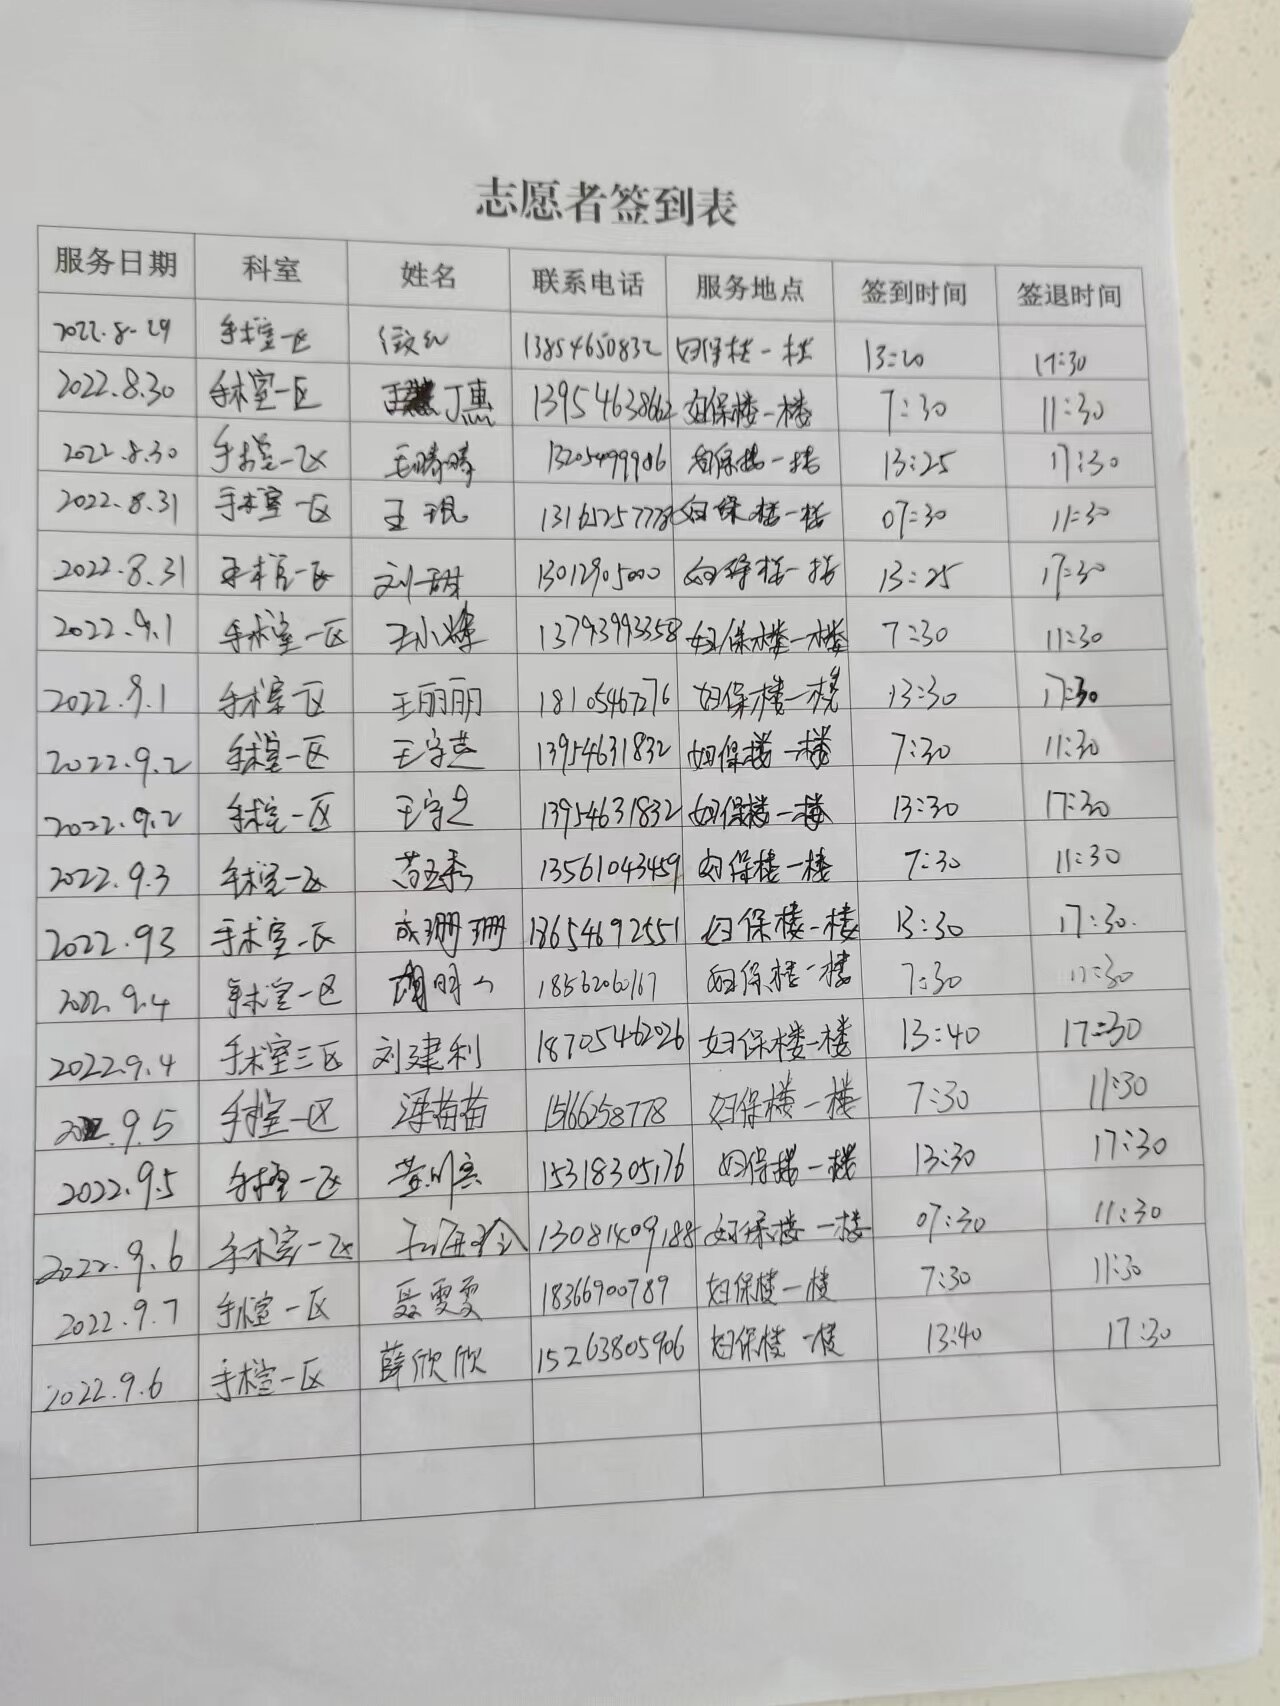 志愿者签到表
服务日期 科室 姓名 联系电话 服务地点 签到时间 签退时间
2022.8.29 手术室一区 13854650832 妇保楼一楼 13:20 17:30
2022.8.30 手术室一区 丁惠 13954638662 妇保楼一楼 7:30 11:30
2022.8.30 手术室一区 王晴晴 13205499986 妇保楼一楼 13:25 17:30
2022.8.31 手术室一区 王琨 妇保楼一楼 07:30 11:30
2022.8.31 手术室一区 刘甜 13012905000 妇保楼一楼 13:25 17:30
2022.9.1 手术室一区 王小 13793993358 妇保楼一楼 7:30 11:30
2022.9.1 手术室一区 王丽丽 18105467276 妇保楼一楼 13:30 17:30
2022.9.2 手术室一区 13954631832 妇保楼一楼 7:30 11:30
2022.9.2 手术室一区 13954631832 妇保楼一楼 13:30 17:30
2022.9.3 手术室一区 13561043459 妇保楼一楼 7:30 11:30
2022.93 手术室一区 成珊珊 18654692551 妇保楼一楼 13:30 17:30.
2022.9.4 手术室一区 18562060167 妇保楼一楼 7:30 11:30
2022.9.4 手术室三区 刘建利 18705462026 妇保楼一楼 13:40 17:30
2022.9.5 手术室一区 梁苗苗 15166258778 妇保楼一楼 7:30 11:30
2022.9.5 手术室一区 15318305176 妇保楼一楼 13:30 17:30
2022.9.6 手术室一区 13081409188 妇保楼一楼 07:30 11:30
2022.9.7 手术室一区 聂雯雯 18366900789 妇保楼一楼 7:30 11:30
2022.9.6 手术室一区 薛欣欣 15263805906 妇保楼一楼 13:40 17:30